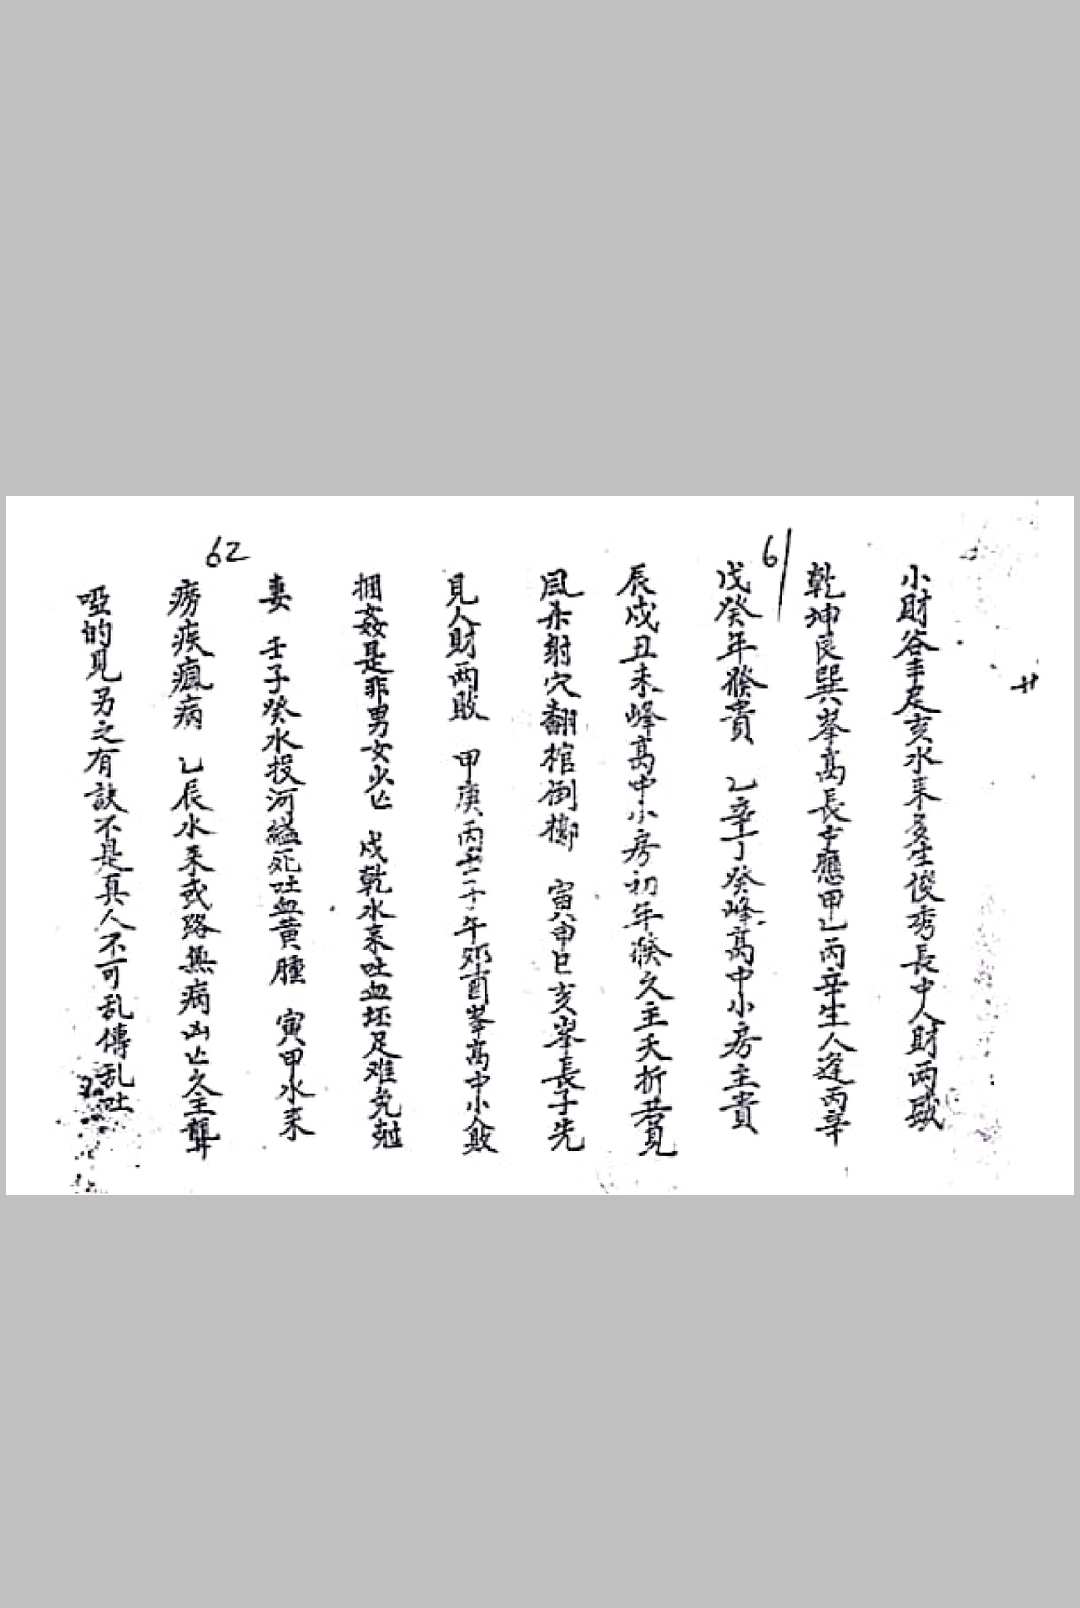 廿
小財谷丰足亥水来多生俊秀長中人財両盛
乾坤艮巽峯高長中應甲乙丙辛生人逢丙辛
61
戊癸年發貴 乙辛丁癸峰高中小房主貴
辰戌丑未峰高中小房初年發久主夭折若見
風來射穴翻棺倒槨 寅申巳亥峯長子先
見人財両敗 甲庚丙壬子午卯酉峯高中小敗
拥姦是非男女少亡 戌乾水来吐血坯足难免尅
妻 壬子癸水投河縊死吐血黄腫 寅甲水来
62
痨疾瘋病 乙辰水来或路無病凶亡久主聾
啞的見另之有訣不是真人不可乱傳乱吐